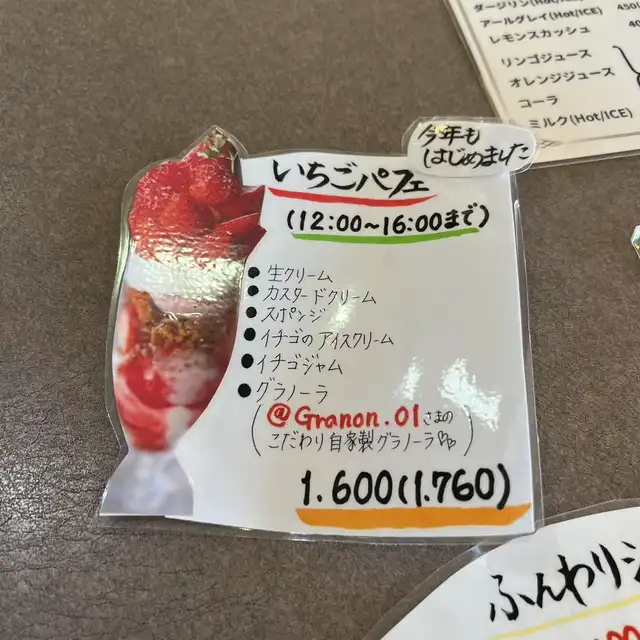 ダージリン(Hot/ICE)
アールグレイ(Hot/ICE)
レモンスカッシュ
リンゴジュース
オレンジジュース
コーラ
ミルク(Hot/ICE)
今年も
はじめました
いちごパフェ
(12:00~16:00まで)
● 生クリーム
● カスタードクリーム
● スポンジ
● イチゴのアイスクリーム
● イチゴジャム
● グラノーラ
(@Granon.01さまの
こだわり自家製グラノーラ)
1.600(1.760)
ふんわり